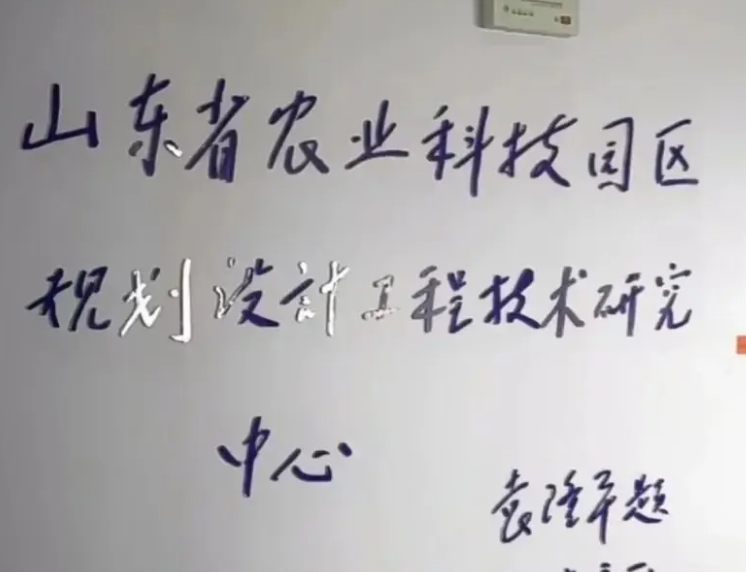 山东省农业科技园区
规划设計工程技术研究
中心
袁隆平题